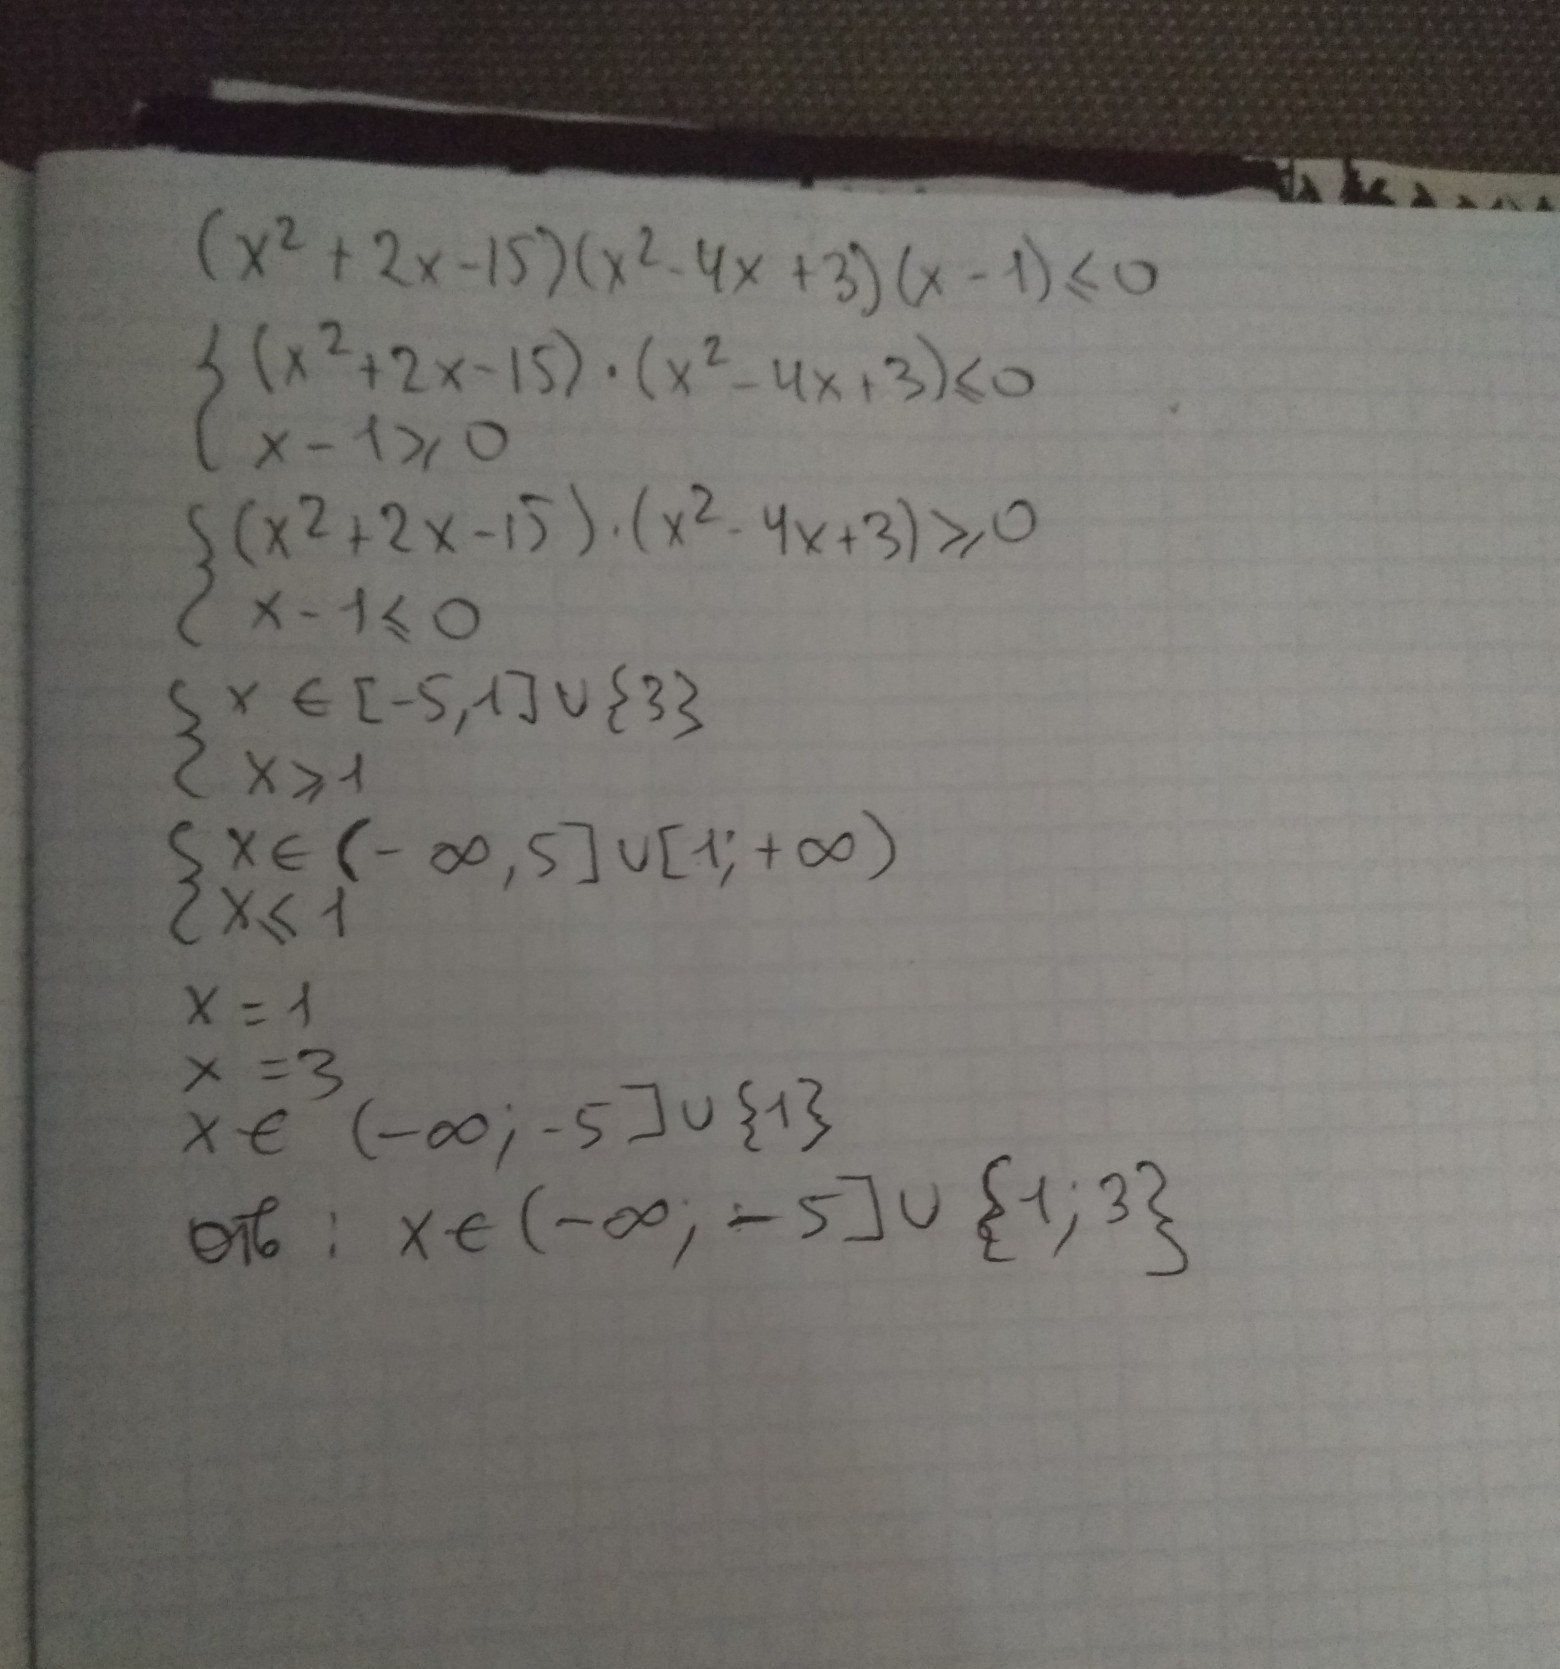 (x²+2x-15)(x²-4x+3)(x-1)⩽0
{(x²+2x-15)·(x²-4x+3)⩽0
x-1⩾0
{(x²+2x-15)·(x²-4x+3)⩾0
x-1⩽0
{x∈[-5,1]∪{3}
x⩾1
{x∈(-∞,5]∪[1;+∞)
x⩽1
x=1
x=3
x∈(-∞;-5]∪{1}
отв: x∈(-∞;-5]∪{1;3}